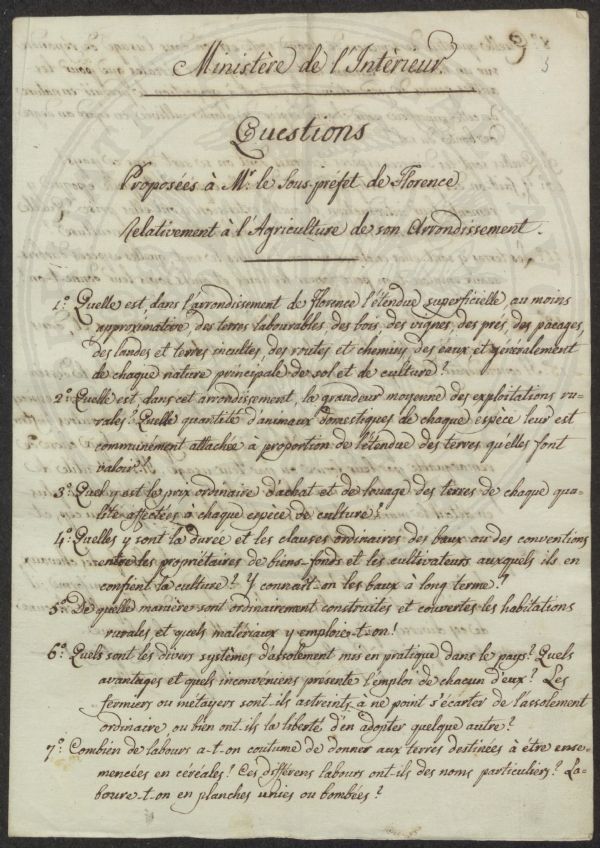 Ministère de l'Intérieur.
Questions
Proposées à Mr. le Sous-préfet de Florence
Relativement à l'Agriculture de son Arrondissement.
1.° Quelle est, dans l'arrondissement de Florence l'étendue superficielle, au moins
approximative, des terres labourables, des bois, des vignes, des prés, des pacages,
des landes et terres incultes, des routes et chemins, des eaux, et généralement
de chaque nature principale de sol et de culture?
2.° Quelle est, dans cet arrondissement, la grandeur moyenne des exploitations ru-
rales? Quelle quantité d'animaux domestiques de chaque espèce leur est
communément attachée à proportion de l'étendue des terres qu'elles font
valoir?
3.° Quel y est le prix ordinaire d'achat et de louage des terres de chaque qua-
lité affectées à chaque espèce de culture?
4.° Quelles y sont la durée et les clauses ordinaires des baux ou des conventions
entre les propriétaires de biens-fonds et les cultivateurs auxquels ils en
confient la culture? Y connaît-on les baux à long terme?
5.° De quelle manière sont ordinairement construites et couvertes les habitations
rurales et quels matériaux y emploie-t-on!
6.° Quels sont les divers systèmes d'assolement mis en pratique dans le pays? Quels
avantages et quels inconvéniens présente l'emploi de chacun d'eux? Les
fermiers ou métayers sont-ils astreints à ne point s'écarter de l'assolement
ordinaire ou bien ont-ils la liberté d'en adopter quelque autre?
7.° Combien de labours a-t-on coutume de donner aux terres destinées à être ense-
mencées en céréales? Ces différens labours ont-ils des noms particuliers? La-
boure-t-on en planches unies ou bombées?